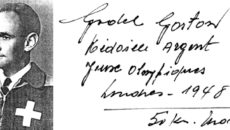 Godel Gaston
Médaille Argent
Jeux Olympiques
Londres - 1948
50 km. Mar